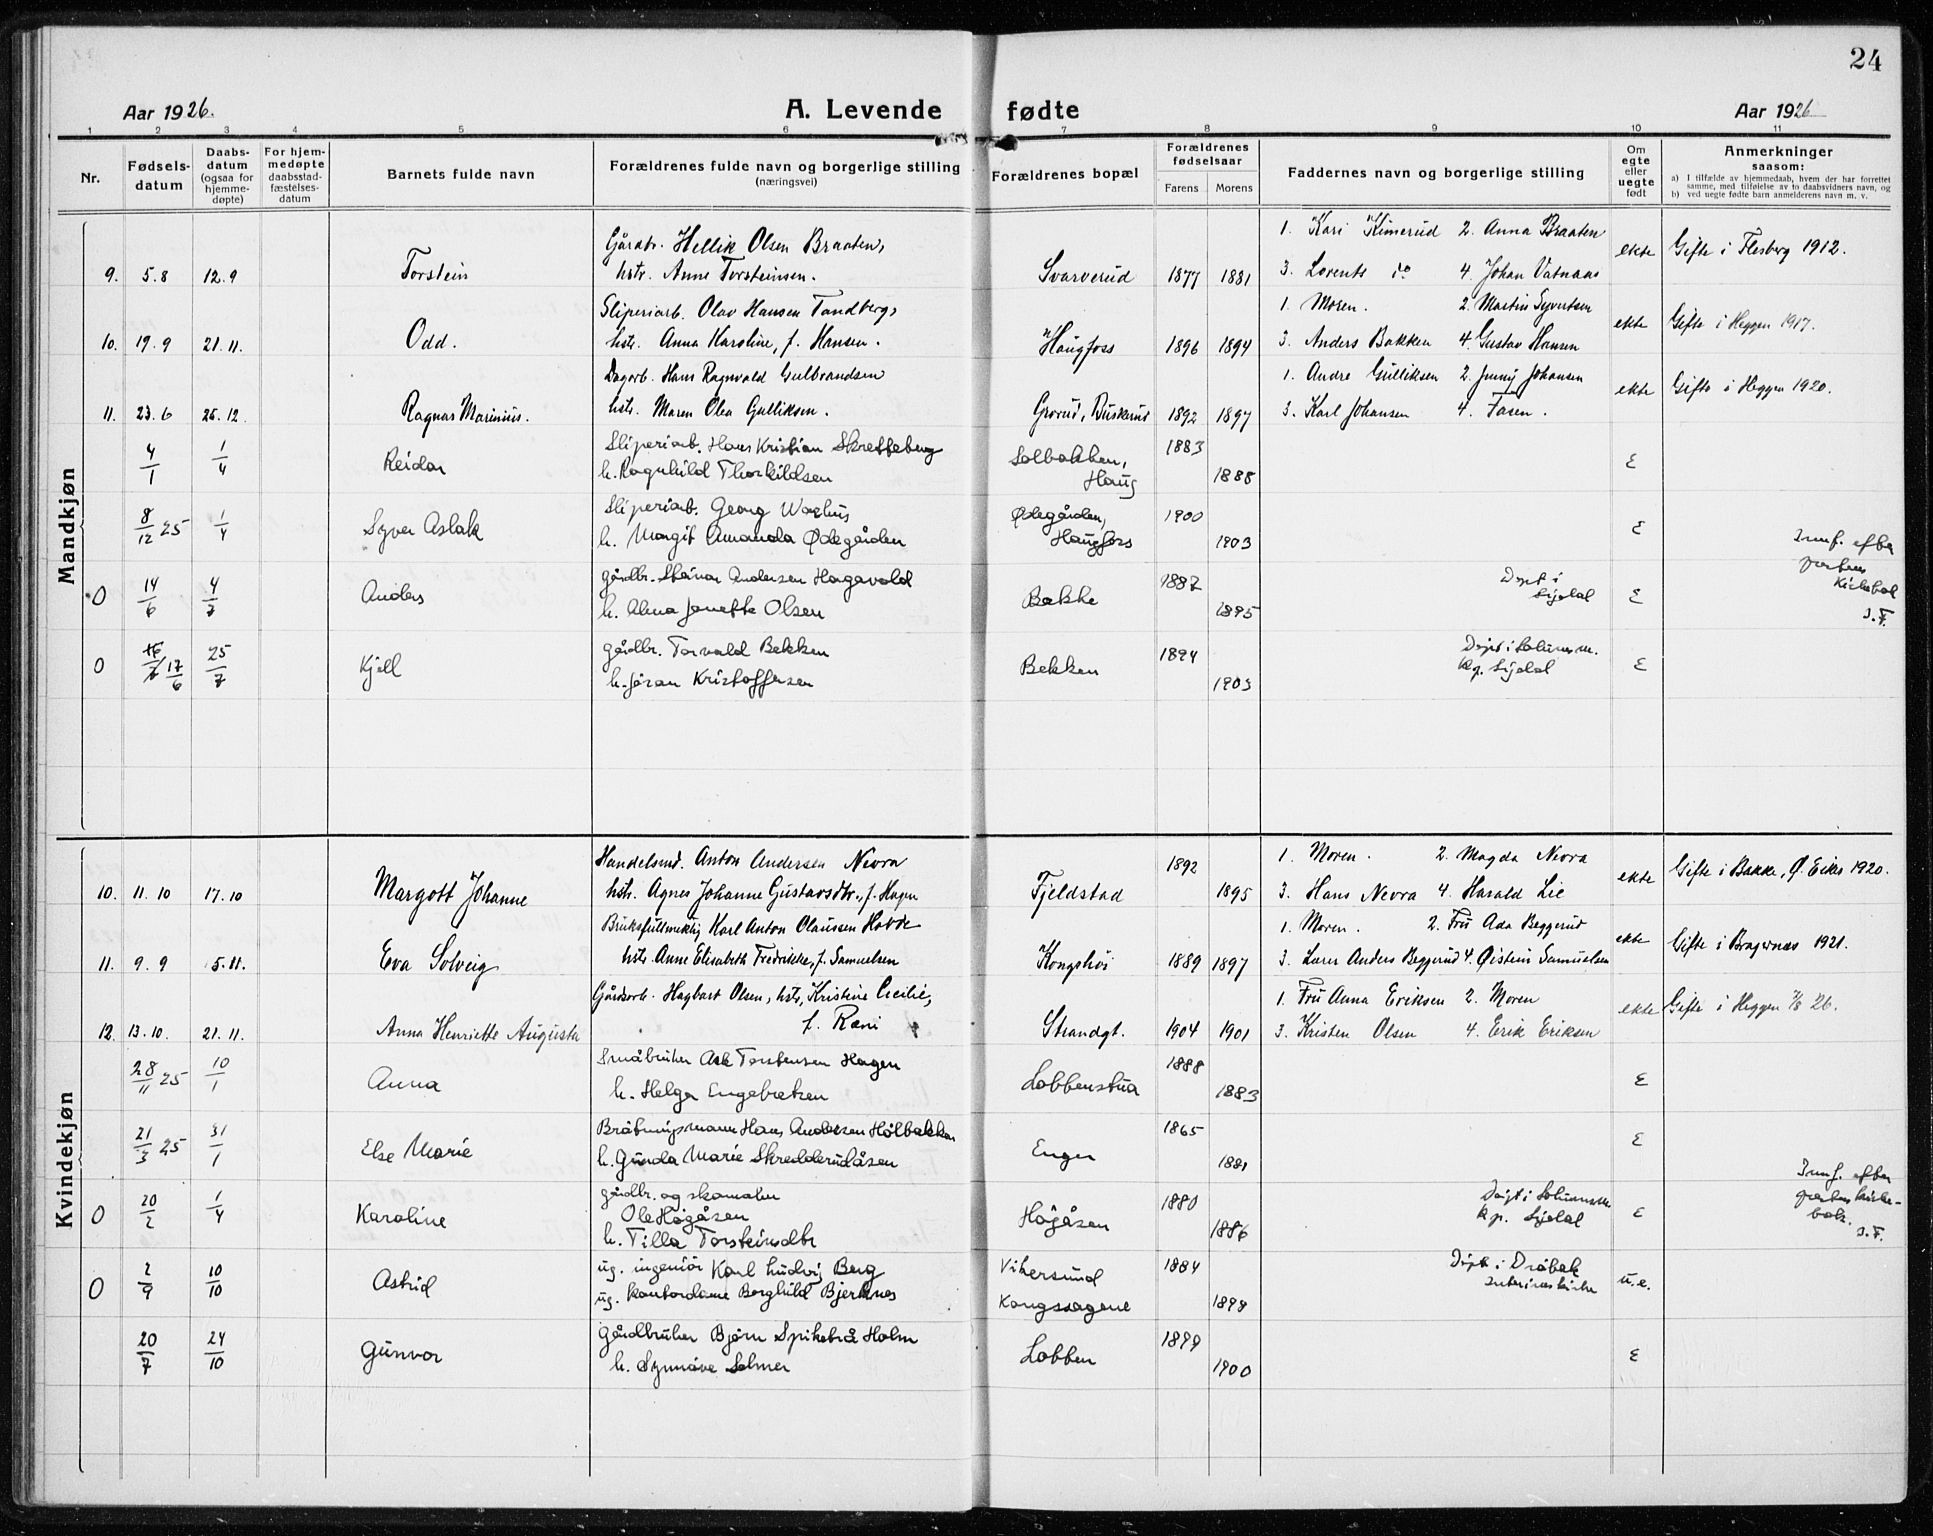 24
Aar 1926.
A. Levende fødte
Aar 1926
1 2 3 4 5 6 7 8 9 10 11
Nr.
Fødsels-
datum
Daabs-
datum
(ogsaa for
hjemme-
døpte)
For hjem-
medøpte
daabsstad-
fæstelses-
datum
Barnets fulde navn
Forældrenes fulde navn og borgerlige stilling
(næringsvei)
Forældrenes bopæl
Forældrenes
fødselsaar
Farens Morens
Faddernes navn og borgerlige stilling
Om
egte
eller
uegte
født
Anmerkninger
saasom:
a) I tilfælde av hjemmedaab, hvem der har forrettet
samme, med tilføielse av to daabsvidners navn, og
b) ved uegte fødte barn anmelderens navn m. v.
Mandkjøn
Gårdbr. Hellik Olsen Braaten, 1. Kari Kimerud 2. Anna Braaten
9. 5.8 12.9 Torstein hstr. Anne Torsteinsen. Svarverud 1877 1881 3. Lorents do 4. Johan Vatnaas ekte Gifte i Flesberg 1912.
Sliperiarb. Olav Hansen Tandberg, 1. Moren. 2. Martin Syvertsen
10. 19.9 21.11. Odd. hstr. Anna Karoline, f. Hansen. Haugfoss 1896 1894 3. Anders Bakken 4. Gustav Hansen ekte Gifte i Heggen 1917.
Dagarb. Hans Ragnvald Gulbrandsen 1. Andre Gulliksen 2. Jenny Johansen
11. 23.6 26.12. Ragnar Marinius. hstr. Maren Olea Gulliksen. Grorud, Buskerud 1892 1897 3. Karl Johansen 4. Faren. ekte Gifte i Heggen 1920.
4/1 1/4 Reidar Sliperiarb. Hans Kristian Skretteberg Solbakken, 1883
h. Ragnhild Thorkildsen Haug 1888 E
8/12 25 1/4 Syver Aslak Sliperiarb. Georg Waghus Ødegården, 1900
h. Margit Amanda Ødegården Haugfoss 1903 E
O 14/6 4/7 Anders gårdbr. Steinar Andersen Hagavold Bakke 1887 Døpt i
h. Alma Janette Olsen 1895 Sigdal E
O 17/6 25/7 Kjell gårdbr. Torvald Bekken Bekken 1894
h. Jøran Kristoffersen 1903 kp. Sigdal E
Innf. efter
prestens
Kirkebok
S.F.
Kvindekjøn
Handelsmd. Anton Andersen Nevra 1892 1. Moren. 2. Magda Nevra
10. 11.10 17.10 Margott Johanne hstr. Agnes Johanne Gustavsdtr., f. Hagen Fjeldstad 1895 3. Hans Nevra 4. Harald Lie ekte Gifte i Bakke, Ø. Eiker 1920.
Bruksfullmektig Karl Anton Olaussen Hovde 1. Moren. 2. Fru Ada Beggerud
11. 9.9 5.11. Eva Solveig hstr. Anne Elisabeth Fredrikke, f. Samuelsen Kongshøi 1889 1897 3. Lærer Anders Beggerud 4. Øistein Samuelsen ekte Gifte i Bragernes 1921.
Gårdsarb. Hagbart Olsen, hstr. Kristine Cecilie, 1. Fru Anna Eriksen 2. Moren
12. 13.10. 21.11. Anna Henriette Augusta f. Rani Strandgt. 1904 1901 3. Kristen Olsen 4. Erik Eriksen ekte Gifte i Heggen 7/8 26.
28/11 25 10/1 Anna Småbruker Ask Torstensen Hagen Lobbenstua 1888
h. Helga Engebretsen 1883 E
21/3 25 31/1 Else Marie Bråtningsmann Hans Andersen Hølbakken Enger 1865
h. Gunda Marie Skredderudåsen 1881 E
O 20/2 1/4 Karoline gårdbr. og skomaker
Ole Høgåsen Høgåsen 1880
h. Tilla Torsteinsdtr 1886 kp. Sigdal E
Innf. efter
prestens kirke-
bok.
S.F.
O 2/9 10/10 Astrid ug. ingeniør Karl Ludvig Berg Vikersund 1884 Døpt i Drøbak
ug. kontordame Borghild Bjerknes Kongssagene 1898 u.e.
20/7 24/10 Gunvor gårdbruker Bjørn Spikebrå Holm Lobben 1899
h. Synnøve Selmer 1900 E